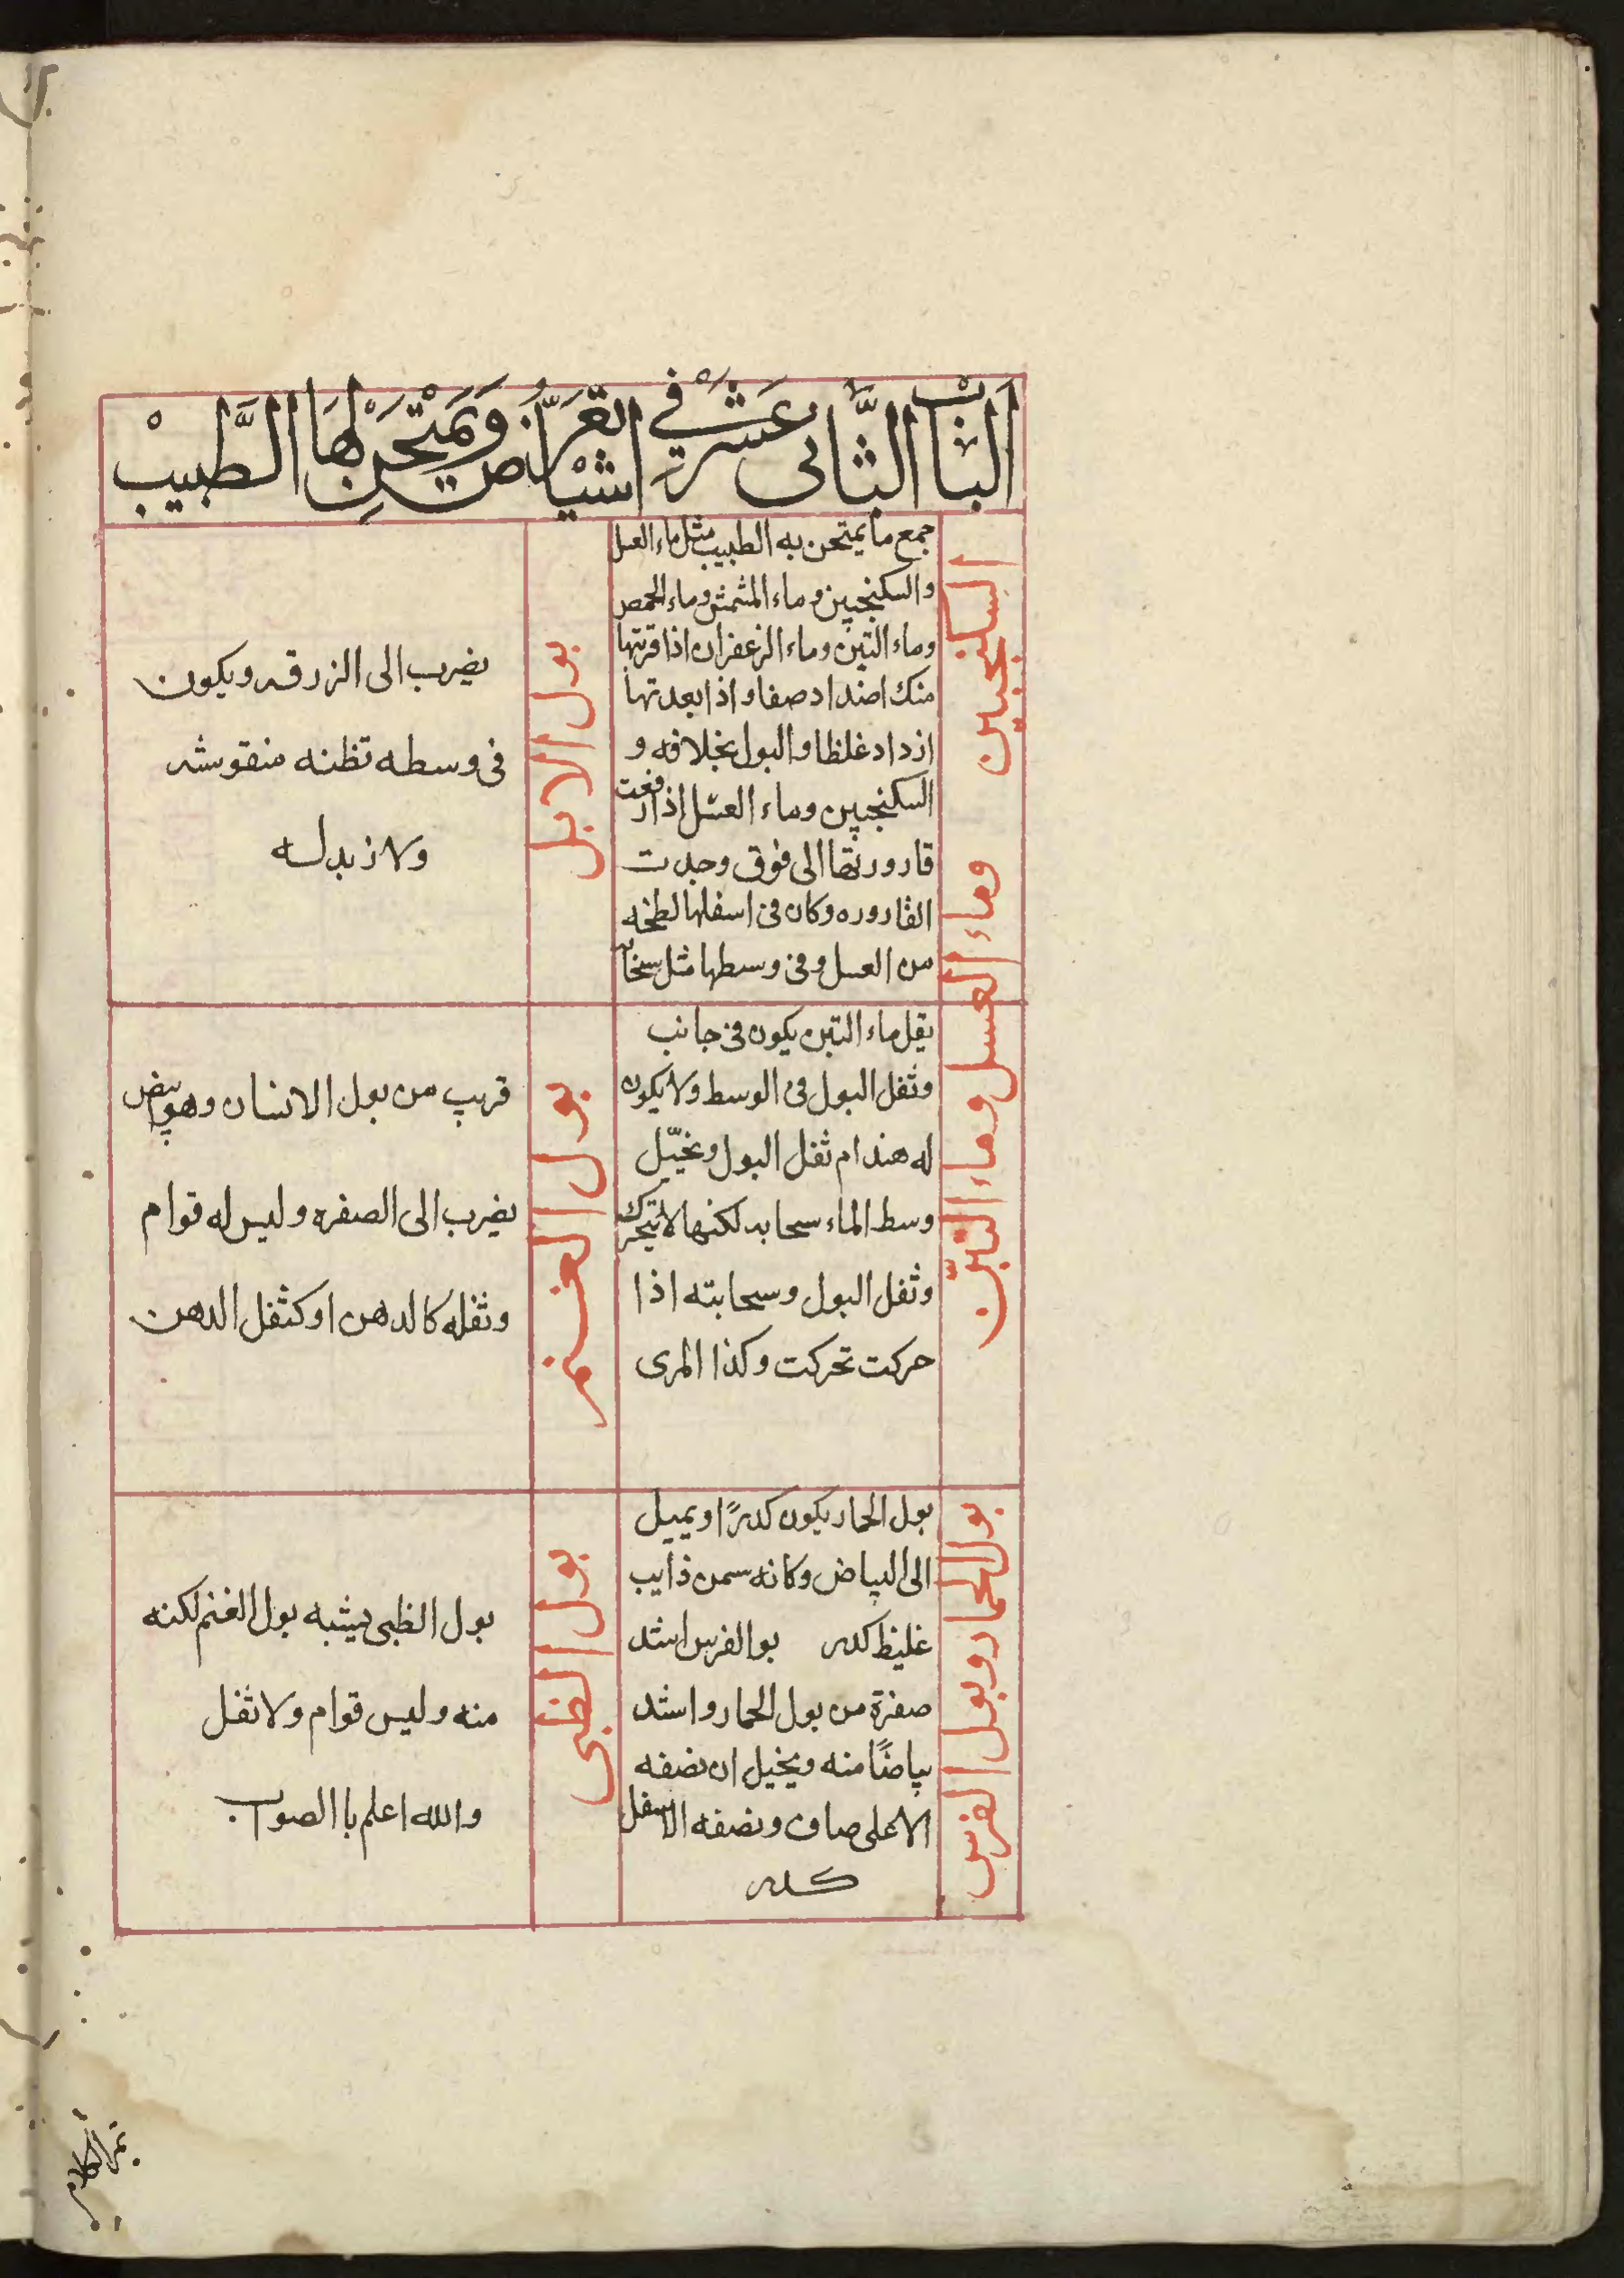 الباب الثانى عشر في اشيا تعرض ويمتحن لها الطبيب
السكنجبين وماء العسل وماء التين
جمع ما يمتحن به الطبيب مثل ماء العسل
والسكنجبين وماء المشمش وماء الحمص
وماء التين وماء الزعفران اذا قربتها
منك اضداد صفا واذا بعدتها
ازداد غلظا والبول بخلافه و
السكنجبين وماء العسل اذا رفعت
قارورتها الى فوق وجدت
القاروره وكان فى اسفلها لطخه
من العسل وفى وسطها مثل سحاب
بول الابل
يضرب الى الزرقه ويكون
فى وسطه تظنه منقوشه
ولا زبد له
ثفل ماء التين يكون فى جانب
وثفل البول فى الوسط ولا يكون
له هندام ثفل البول وتخيّل
وسط الماء سحابه لكنها لا تتحرك
وثفل البول وسحابته اذا
حركت تحركت وكذا المرى
بول الغنم
قريب من بول الانسان وهو ابيض
يضرب الى الصفره وليس له قوام
وثفله كالدهن او كثفل الدهن
بول الحمار وبول الفرس
بول الحمار يكون كدرًا ويميل
الى البياض وكانه سمن ذايب
غليظ كدر بو الفرس اشد
صفرة من بول الحمار واشد
بياضًا منه ويخيل ان نصفه
الاعلى صاف ونصفه الاسفل
كدر
بول الظبى
بول الظبى يشبه بول الغنم لكنه
منه وليس قوام ولا ثفل
والله اعلم باالصواب
تم الكلام